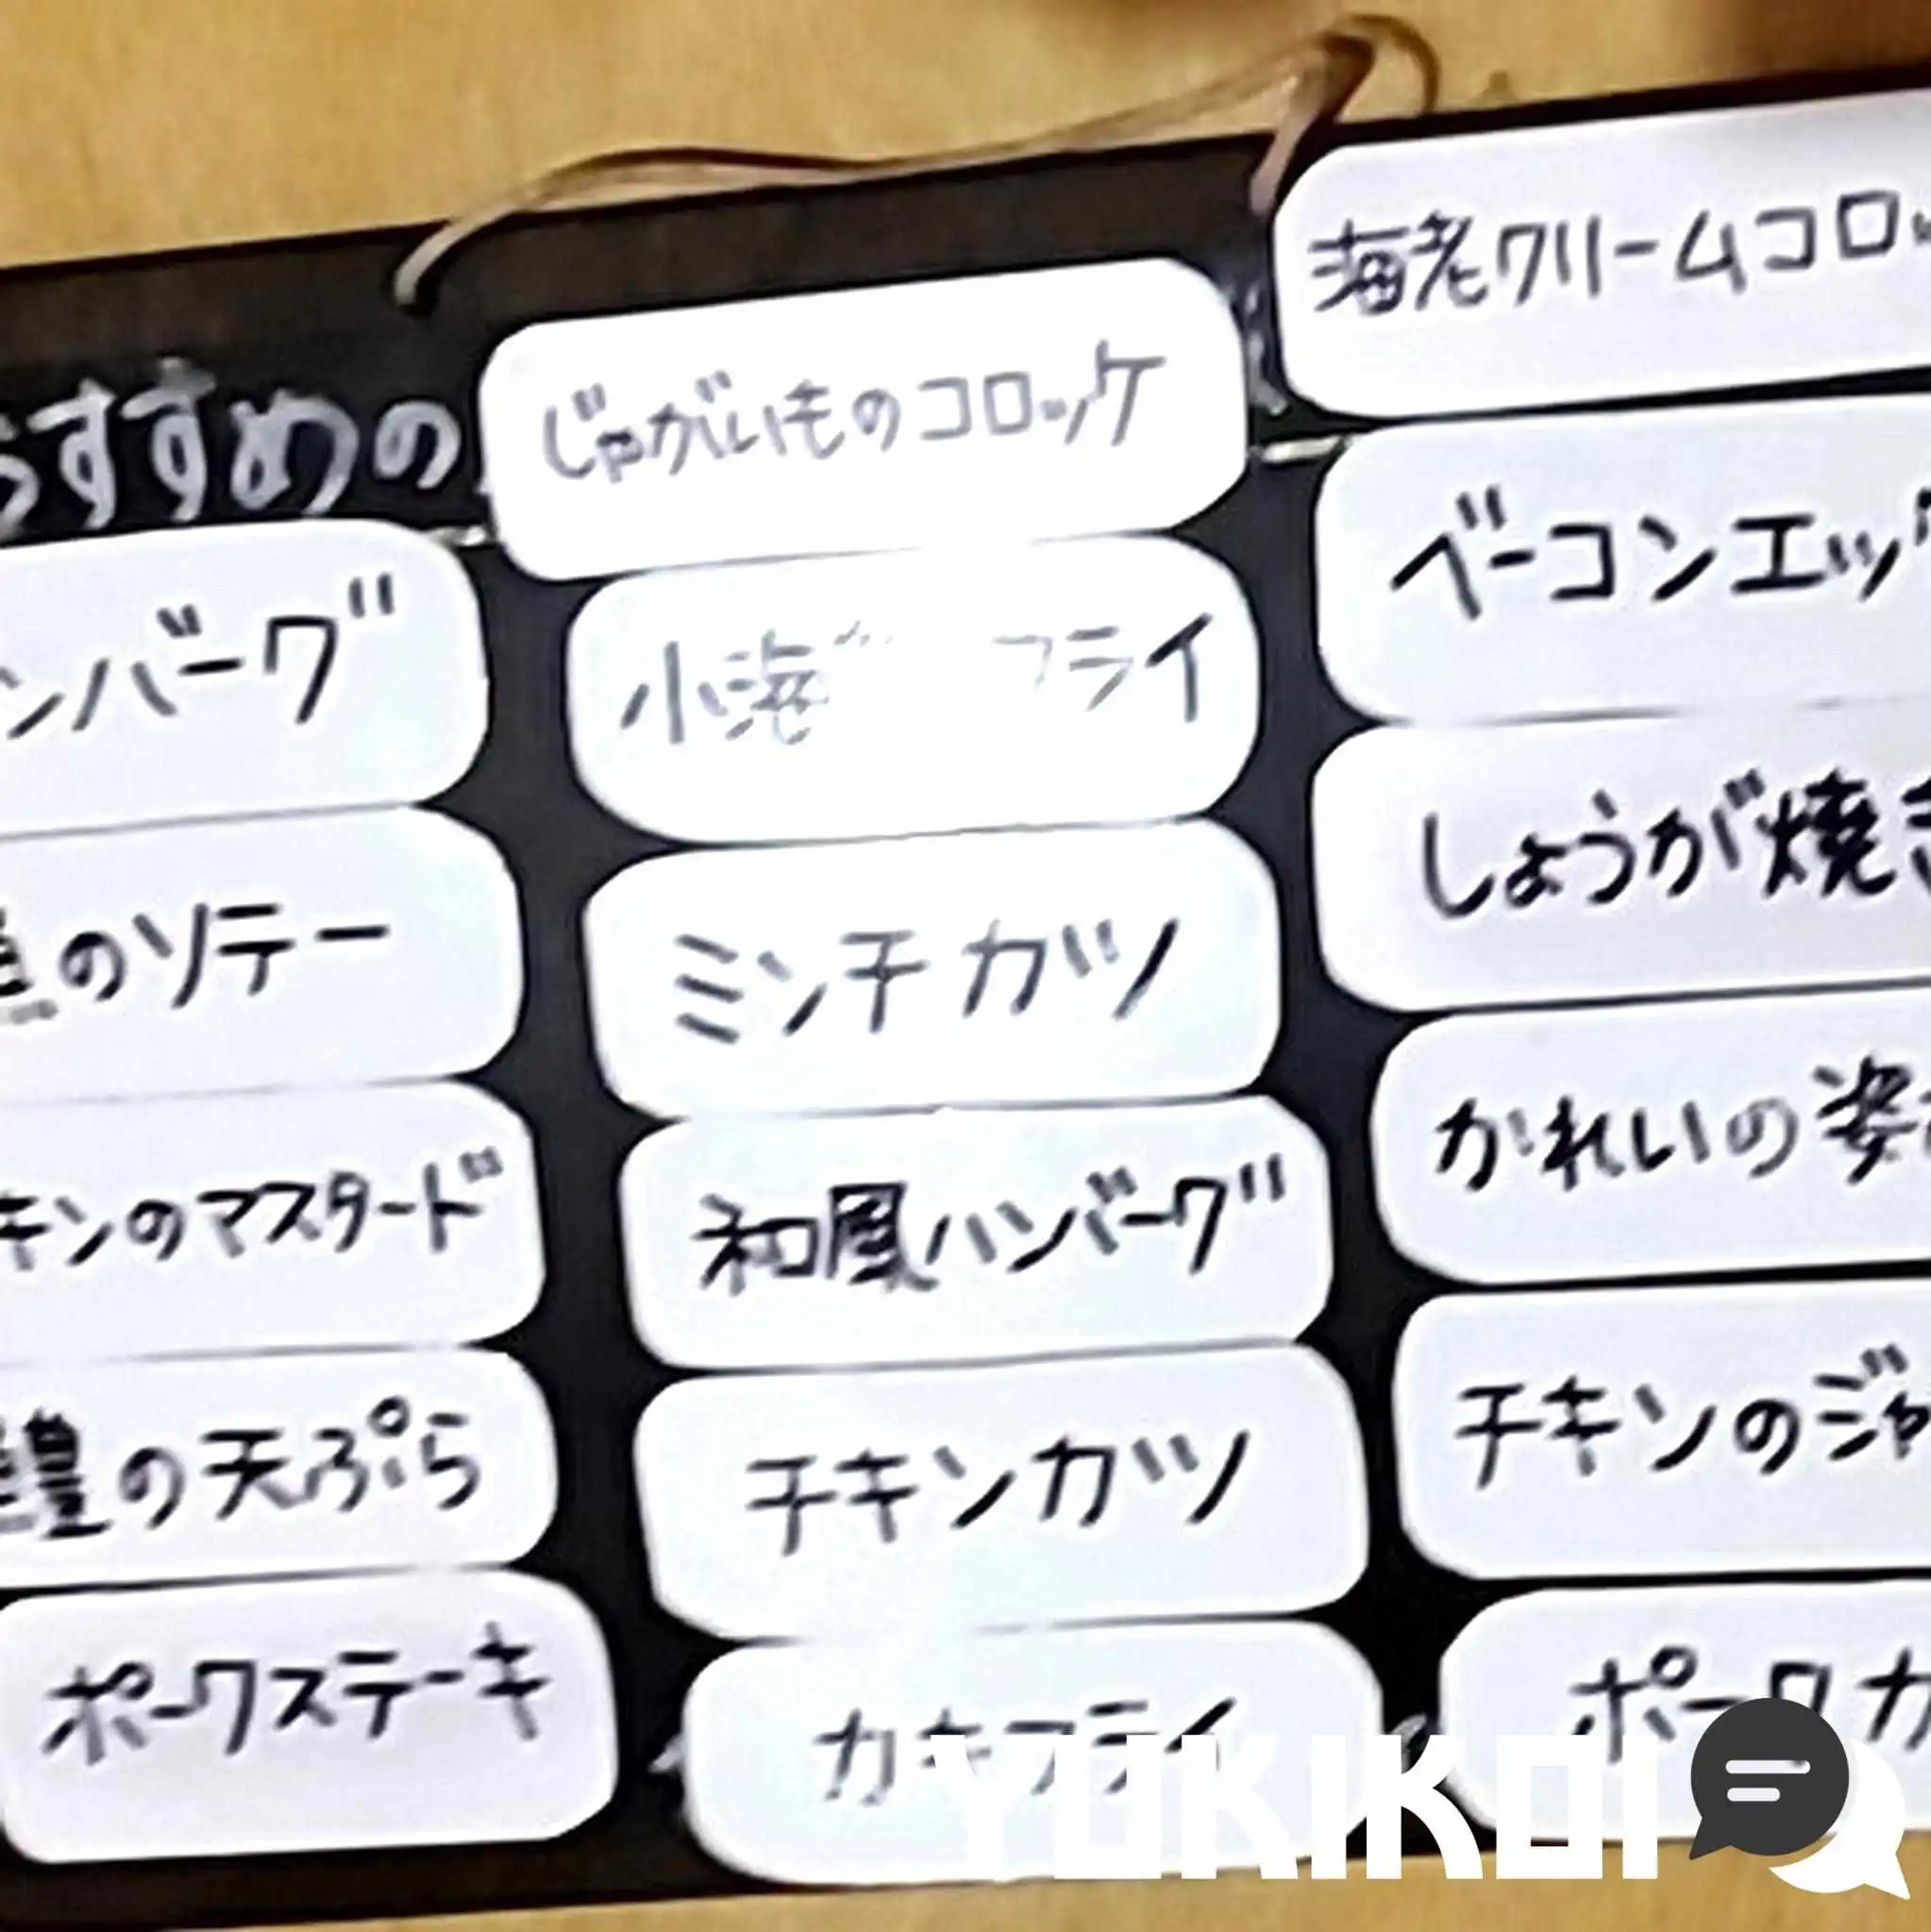 おすすめの
ンバーグ
のソテー
キンのマスタード
の天ぷら
ポークステーキ
じゃがいものコロッケ
小海 フライ
ミンチカツ
和風ハンバーグ
チキンカツ
カキフライ
海老クリームコロッ
ベーコンエッグ
しょうが焼き
かれいの姿
チキンのジャ
ポークカ
YUKIKOI